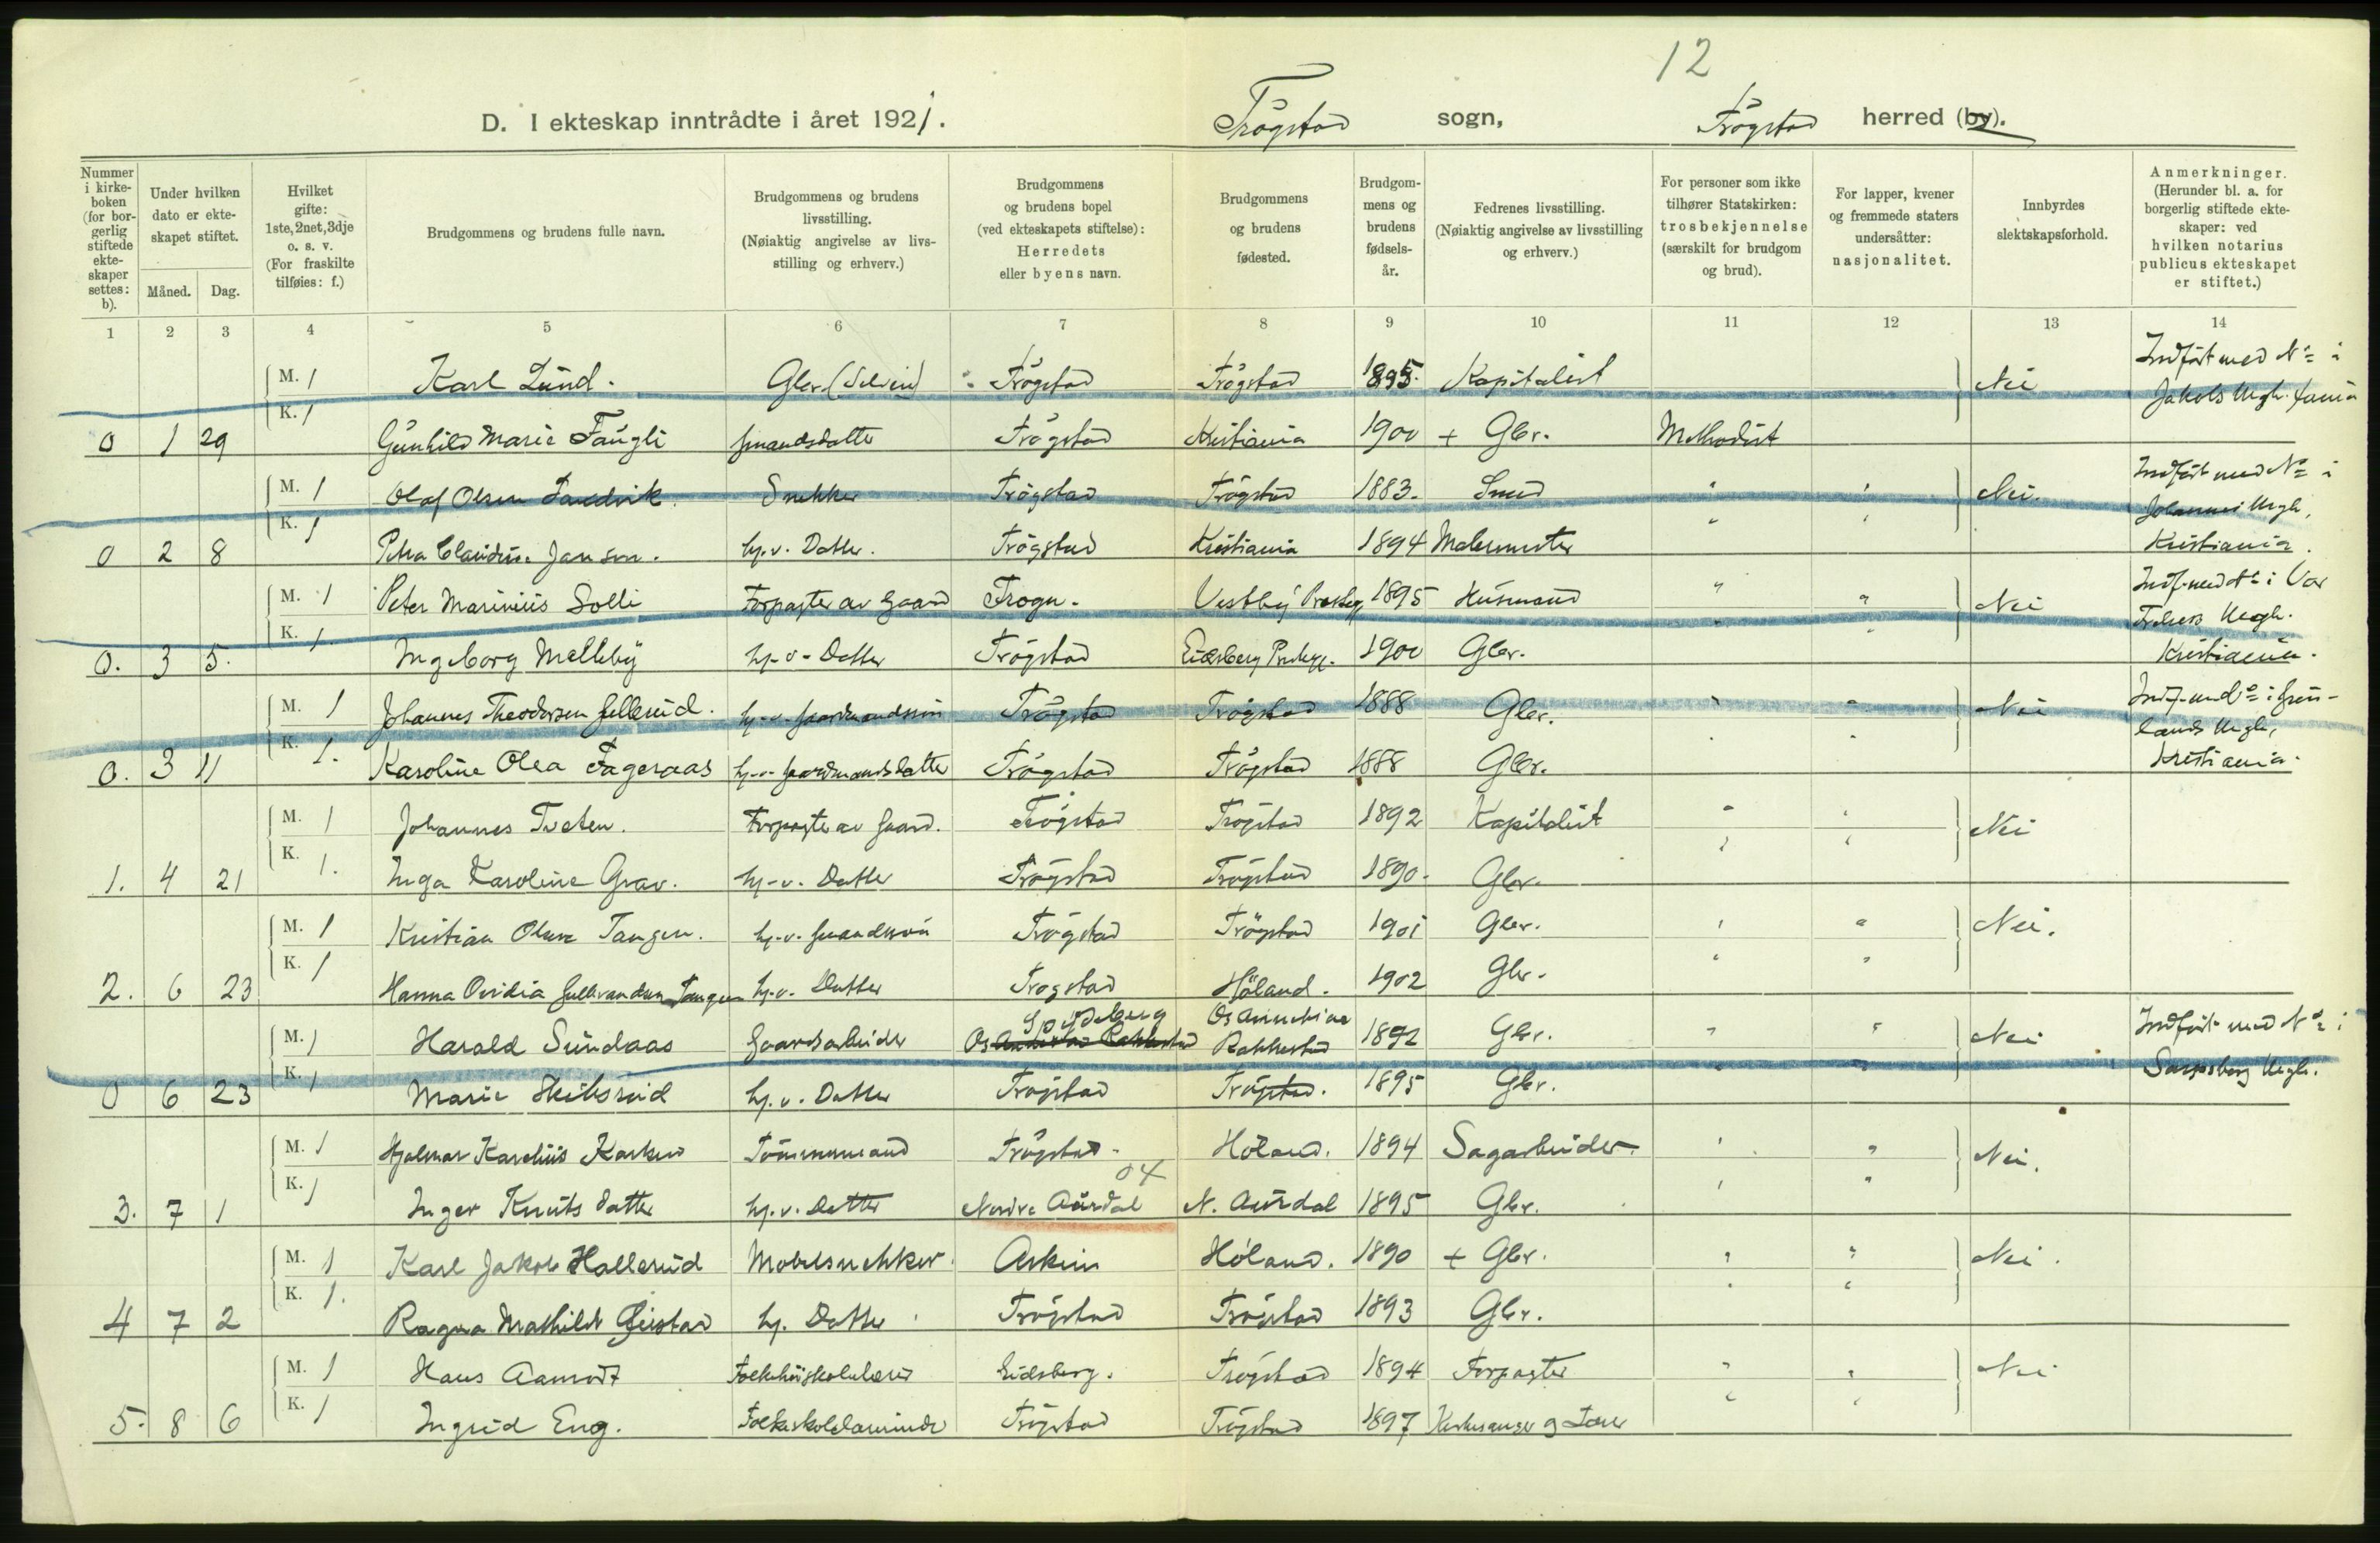 12
D. I ekteskap inntrådte i året 1921. Trøgstad sogn, Trøgstad herred (by).
Nummer i kirkeboken (for borgerlig stiftede ekteskaper settes: b).
Under hvilken dato er ekteskapet stiftet.
Måned. Dag.
Hvilket gifte: 1ste, 2net, 3dje o. s. v. (For fraskilte tilføies: f.)
Brudgommens og brudens fulle navn.
Brudgommens og brudens livsstilling. (Nøiaktig angivelse av livsstilling og erhverv.)
Brudgommens og brudens bopel (ved ekteskapets stiftelse): Herredets eller byens navn.
Brudgommens og brudens fødested.
Brudgommens og brudens fødselsår.
Fedrenes livsstilling. (Nøiaktig angivelse av livsstilling og erhverv.)
For personer som ikke tilhører Statskirken: trosbekjennelse (særskilt for brudgom og brud).
For lapper, kvener og fremmede staters undersåtter: nasjonalitet.
Innbyrdes slektskapsforhold.
Anmerkninger. (Herunder bl. a. for borgerlig stiftede ekteskaper: ved hvilken notarius publicus ekteskapet er stiftet.)
1 2 3 4 5 6 7 8 9 10 11 12 13 14
M. 1 Karl Lund. Gbr. Trøgstad Trøgstad 1895. Kapitalist Nei Indført med No i Jakobs Mgh.
K. 1
0 1 29 Gunhild Marie Faugli Gmandsdatter Trøgstad Kristiania 1900 + Gbr. Methodist
M. 1 Olaf Olsen Sandvik. Snekker Trøgstad Trøgstad 1883. Smed " " Nei. Indført med No i Johannes Mgh, Kristiania.
K. 1 " "
0 2 8 Petra Claudine Janson. hj.v. Datter. Trøgstad Kristiania 1894 Malermester
M. 1 Peter Marinius Solli Forpagter av Gaard Frogn. Vestby Prestegj. 1895 Husmand " " Nei Indf. med No i Vor Frelsers Mgh. Kristiania.
K. 1. " "
0. 3 5. Ingeborg Melleby hj-v-Datter Trøgstad Eidsberg Prestegj. 1900 Gbr.
M. 1 Johannes Theodorsen Gullerud. hj-v-Gaardmandssøn Trøgstad Trøgstad 1888 Gbr. " " Nei Indf. med No i Grønlands Mgh, Kristiania.
K. 1. " "
0. 3 11 Karoline Olea Fageraas hj-v-Gaardmandsdatter Trøgstad Trøgstad 1888 Gbr.
M. 1 Johannes Tveten. Forpagter av Gaard. Trøgstad Trøgstad 1892 Kapitalist " " Nei
K. 1. " "
1. 4 21 Inga Karoline Grav. hj-v. Datter Trøgstad Trøgstad 1890. Gbr.
M. 1 Kristian Olsen Tangen. hj-v. Gmandssøn Trøgstad Trøgstad 1901 Gbr. " " Nei.
K. 1 " "
2. 6 23 Hanna Ovidia Tangen hj.v. Datter Trøgstad Høland. 1902 Gbr.
M. 1 Harald Sundaas Gaardsarbeider Spydeberg Os Rakkestad Os Rakkestad 1892 Gbr. " " Nei Indført med No i Sarpsborg Mgh.
K. 1 " "
0 6 23 Marie Skibsrud hj.v. Datter Trøgstad Trøgstad. 1895 Gbr.
M. 1 Hjalmar Karelius Karlsen Tømmermand Trøgstad. Høland. 1894 Sagarbeider. " " Nei.
K. 1 04 " "
3. 7 1 Inger Knuts datter hj.v. Datter Nordre Aurdal N. Aurdal 1895 Gbr.
M. 1 Karl Jakob Hallerud Møbelsnekker. Askim Høland. 1890 + Gbr. " " Nei.
K. 1. " "
4 7 2 Ragna Mathilde Gristad hj. Datter Trøgstad Trøgstad 1893 Gbr.
M. 1 Hans Aamodt Folkehøiskolelærer Eidsberg. Trøgstad 1894 Forpagter " " Nei
K. 1 " "
5. 8 6 Ingrid Eng. Folkeskolelærerinde Trøgstad Trøgstad 1897 Kirkesanger og Lærer